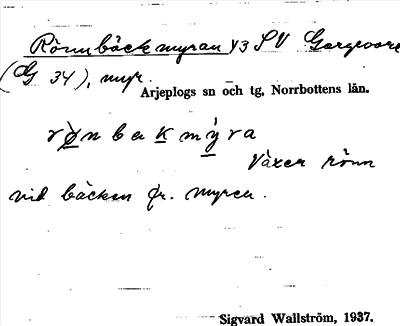 Rönnbäckmyran 43 SV Gargvare
(G 34), myr.
Arjeplogs sn och tg, Norrbottens län.
rønbakmýra
Växer rönn
vid bäcken fr. myren.
Sigvard Wallström, 1937.